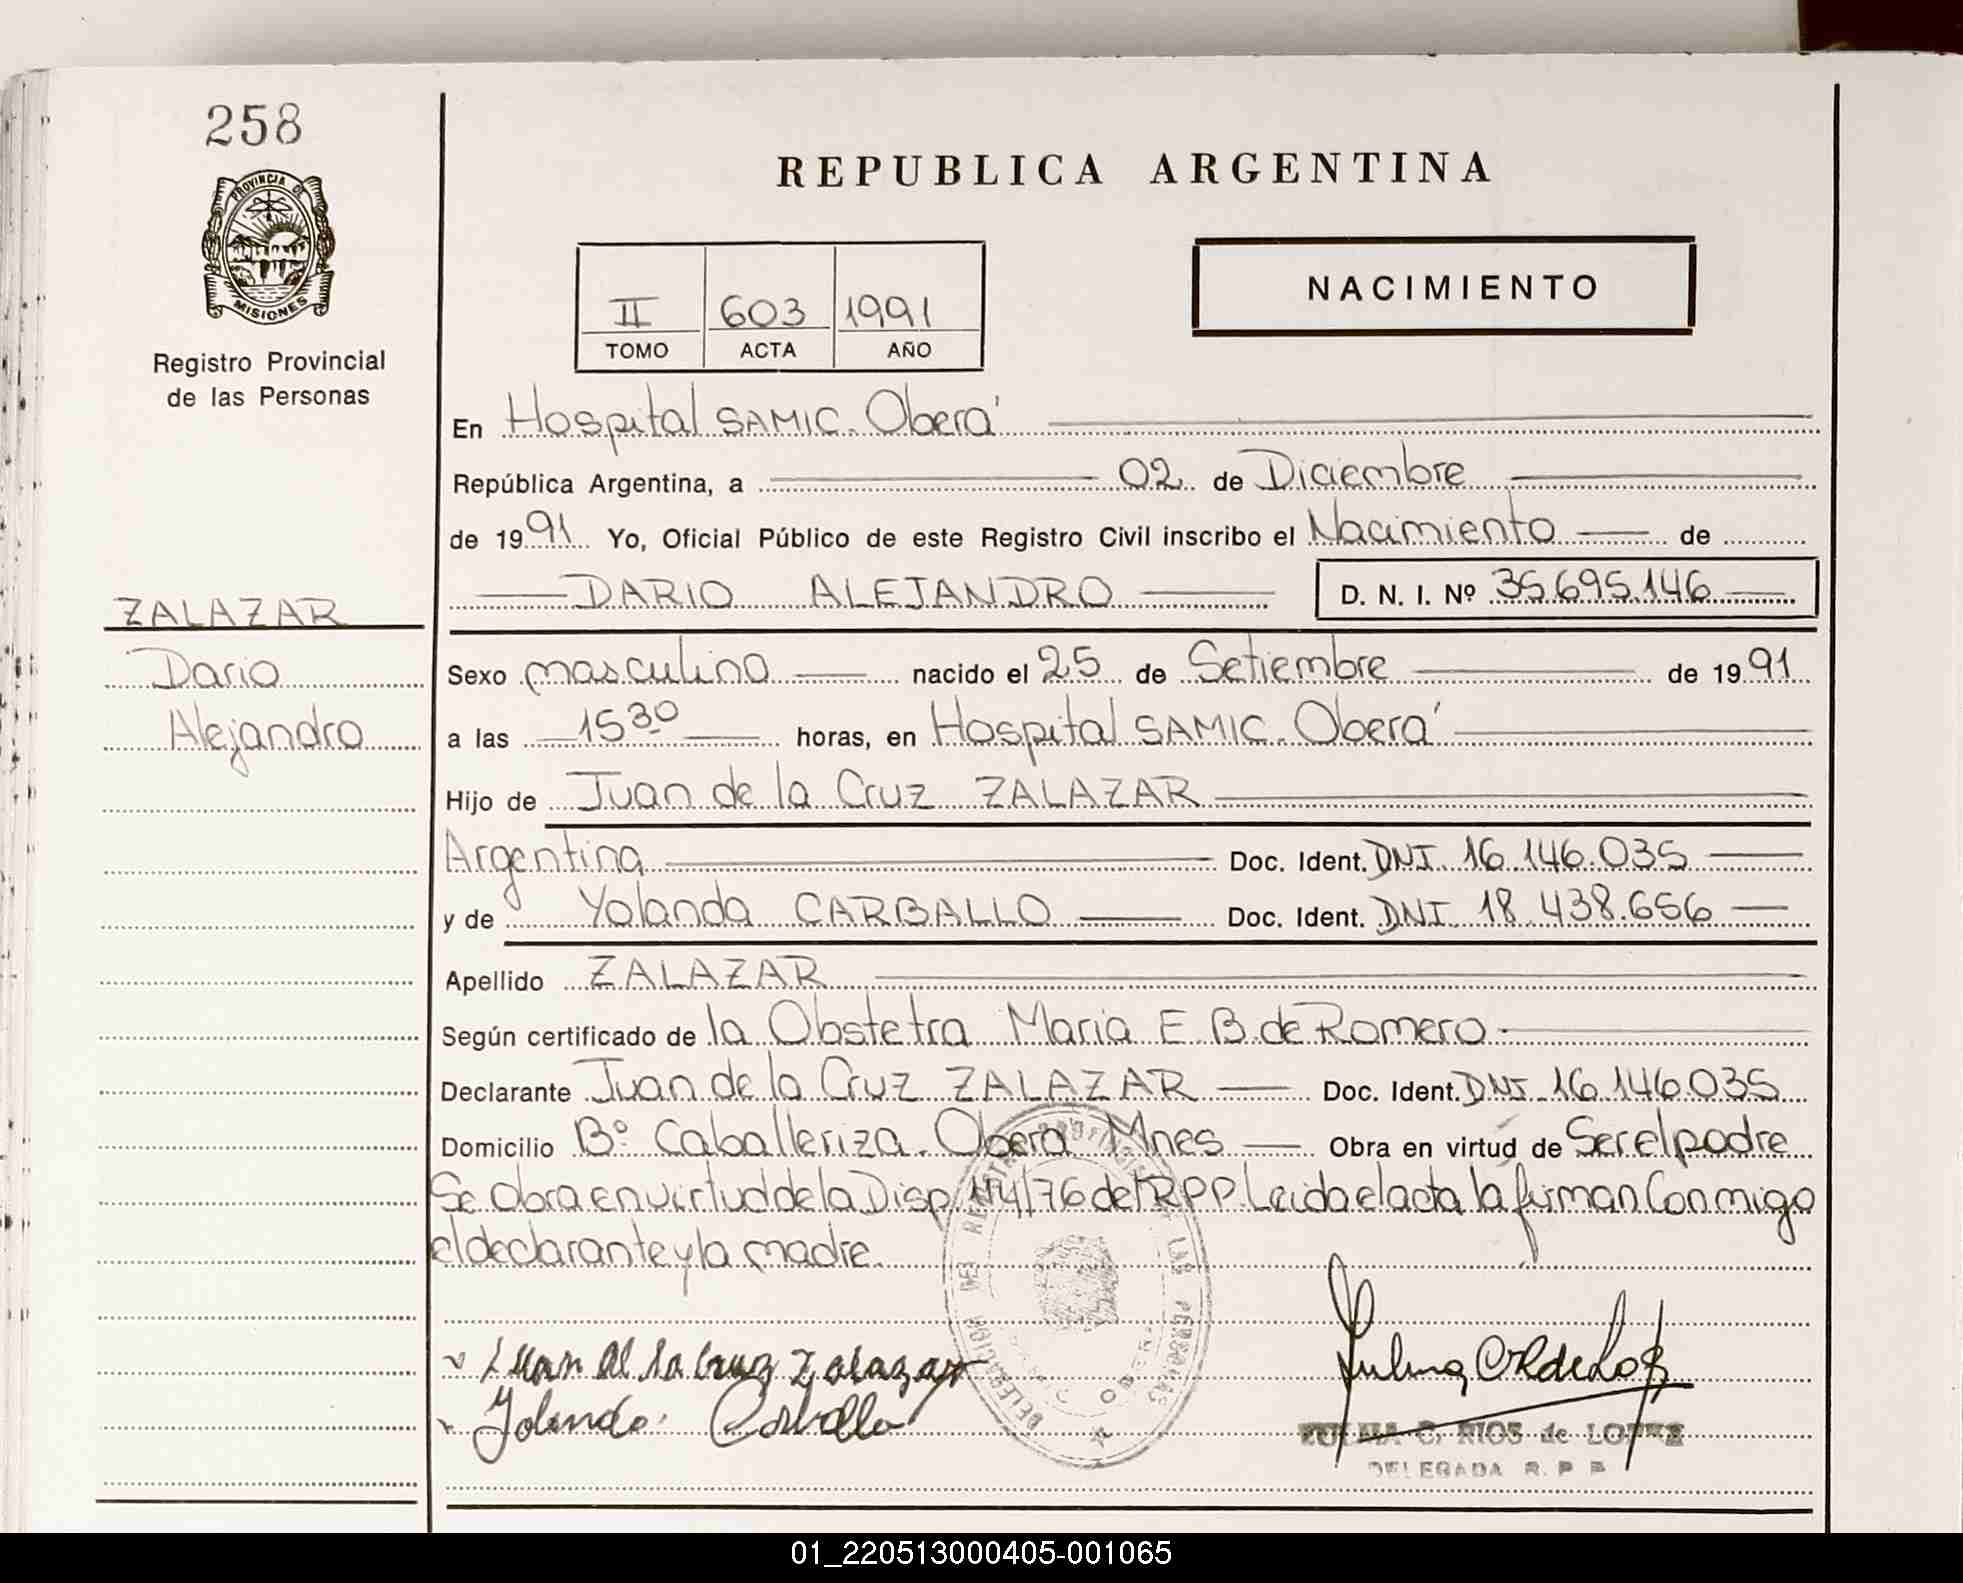 258
PROVINCIA DE
MISIONES
Registro Provincial
de las Personas
REPUBLICA ARGENTINA
NACIMIENTO
II 603 1991
TOMO ACTA AÑO
En Hospital SAMIC. Oberá
República Argentina, a 02 de Diciembre
de 1991 Yo, Oficial Público de este Registro Civil inscribo el Nacimiento de
DARIO ALEJANDRO D. N. I. Nº 35.695.146
ZALAZAR
Dario
Alejandro
Sexo masculino nacido el 25 de Setiembre de 1991
a las 15 30 horas, en Hospital SAMIC. Oberá
Hijo de Juan de la Cruz ZALAZAR
Argentina Doc. Ident. DNI 16.146.035
y de Yolanda CARBALLO Doc. Ident. DNI 18.438.656
Apellido ZALAZAR
Según certificado de la Obstetra Maria E. B. de Romero
Declarante Juan de la Cruz ZALAZAR Doc. Ident. DNI 16.146.035
Domicilio Bº Caballeriza. Oberá Mnes Obra en virtud de Ser el padre
Se obra en virtud de la Disp. Nº4/76 del RPP. Leida el acta la firman Conmigo
el declarante y la madre.
DELEGACION DEL REGISTRO PROVINCIAL DE LAS PERSONAS
Juan de la Cruz Zalazar
Yolanda Carballo
ZULMA C. RIOS de LOPEZ
DELEGADA R. P. P.
01_220513000405-001065